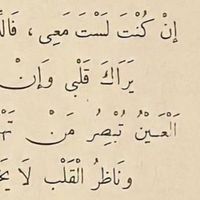 إِنْ كُنْتَ لَسْتَ مَعِي ، فَالذِّ
يَرَاكَ قَلْبِي وَإِنْ
اَلْعَيْنُ تُبْصِرُ مَنْ تَهْ
وَنَاظِرُ الْقَلْبِ لَا يَخْ